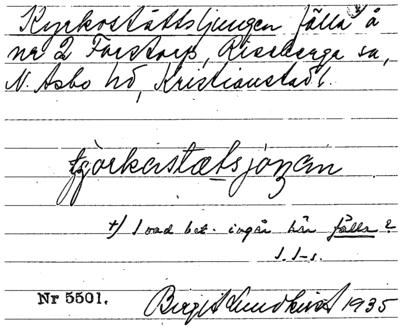 Kyrkostättsljungen fälla å
nr 2 Färstorp, Riseberga sn,
N. Åsbo hd, Kristianstad l.
+) I vad bet. ingår här fälla?
Nr 5501. Birgit Lundkvist 1935